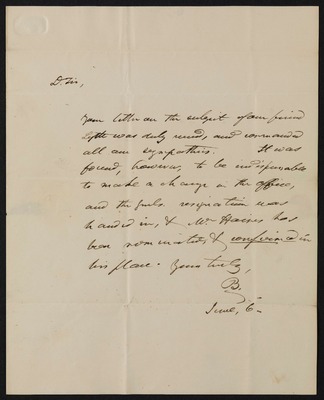 D. Sir,
Your letter on the subject of our friend
was duly recd, and commanded
all our sympathies. It was
found, however, to be indispensable
to make a change in the office,
and the resignation was
handed in, & Mr. Haines has
been nominated & confirmed in
his place. Yours truly,
B.
June, 6.